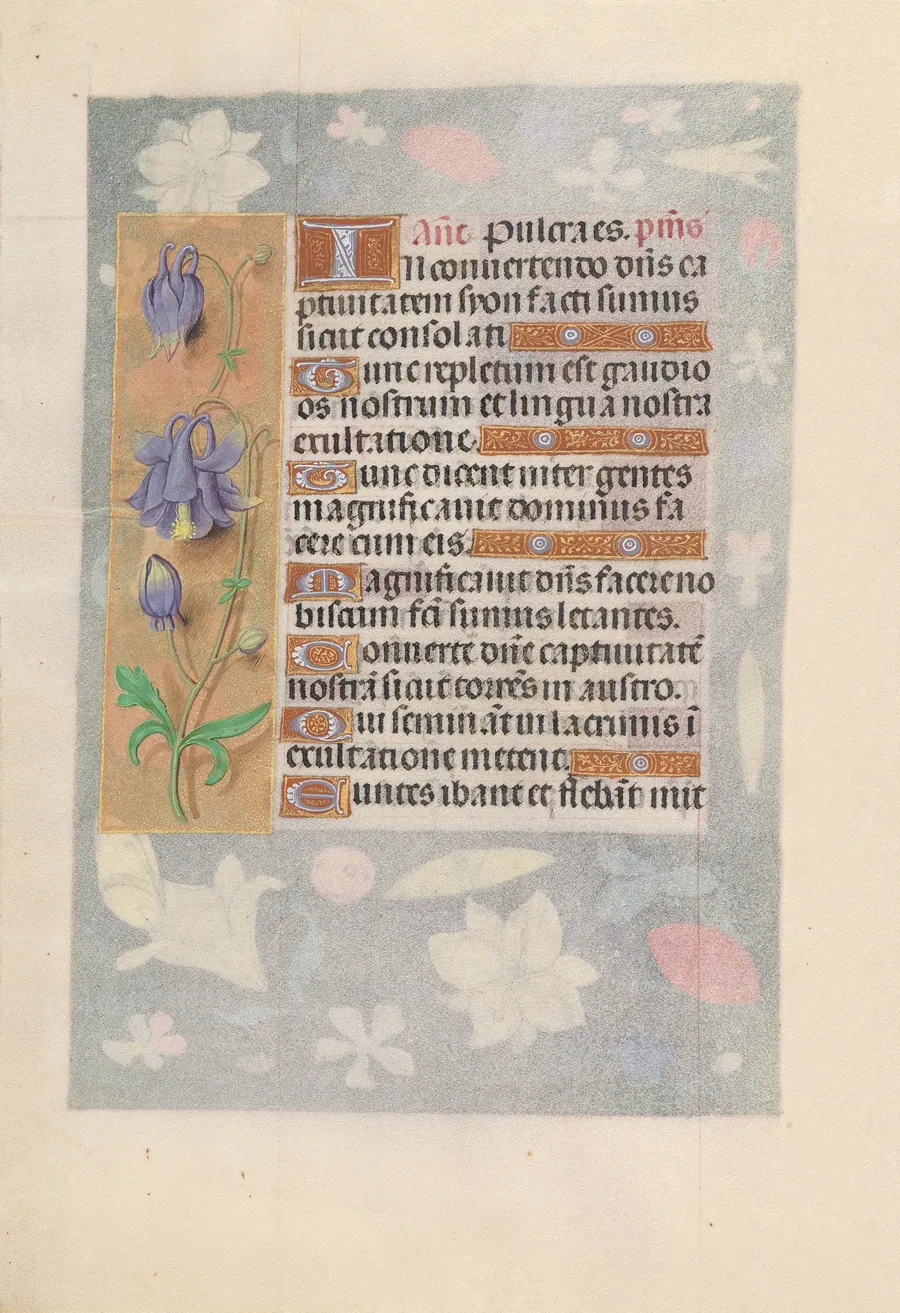 Añt Pulcra es. pm̃s
In conuertendo dñs ca
ptiuitatem syon facti sumus
sicut consolati
Tunc repletum est gaudio
os nostrum et lingua nostra
exultatione.
Tunc dicent inter gentes
magnificauit dominus fa
cere cum eis.
Magnificauit dñs facere no
biscum fc̃i sumus letantes.
Conuerte dñe captiuitatē
nostrā sicut torrēs in austro.
Qui semināt in lacrimis ī
exultatione metent.
Euntes ibant et flebāt mit